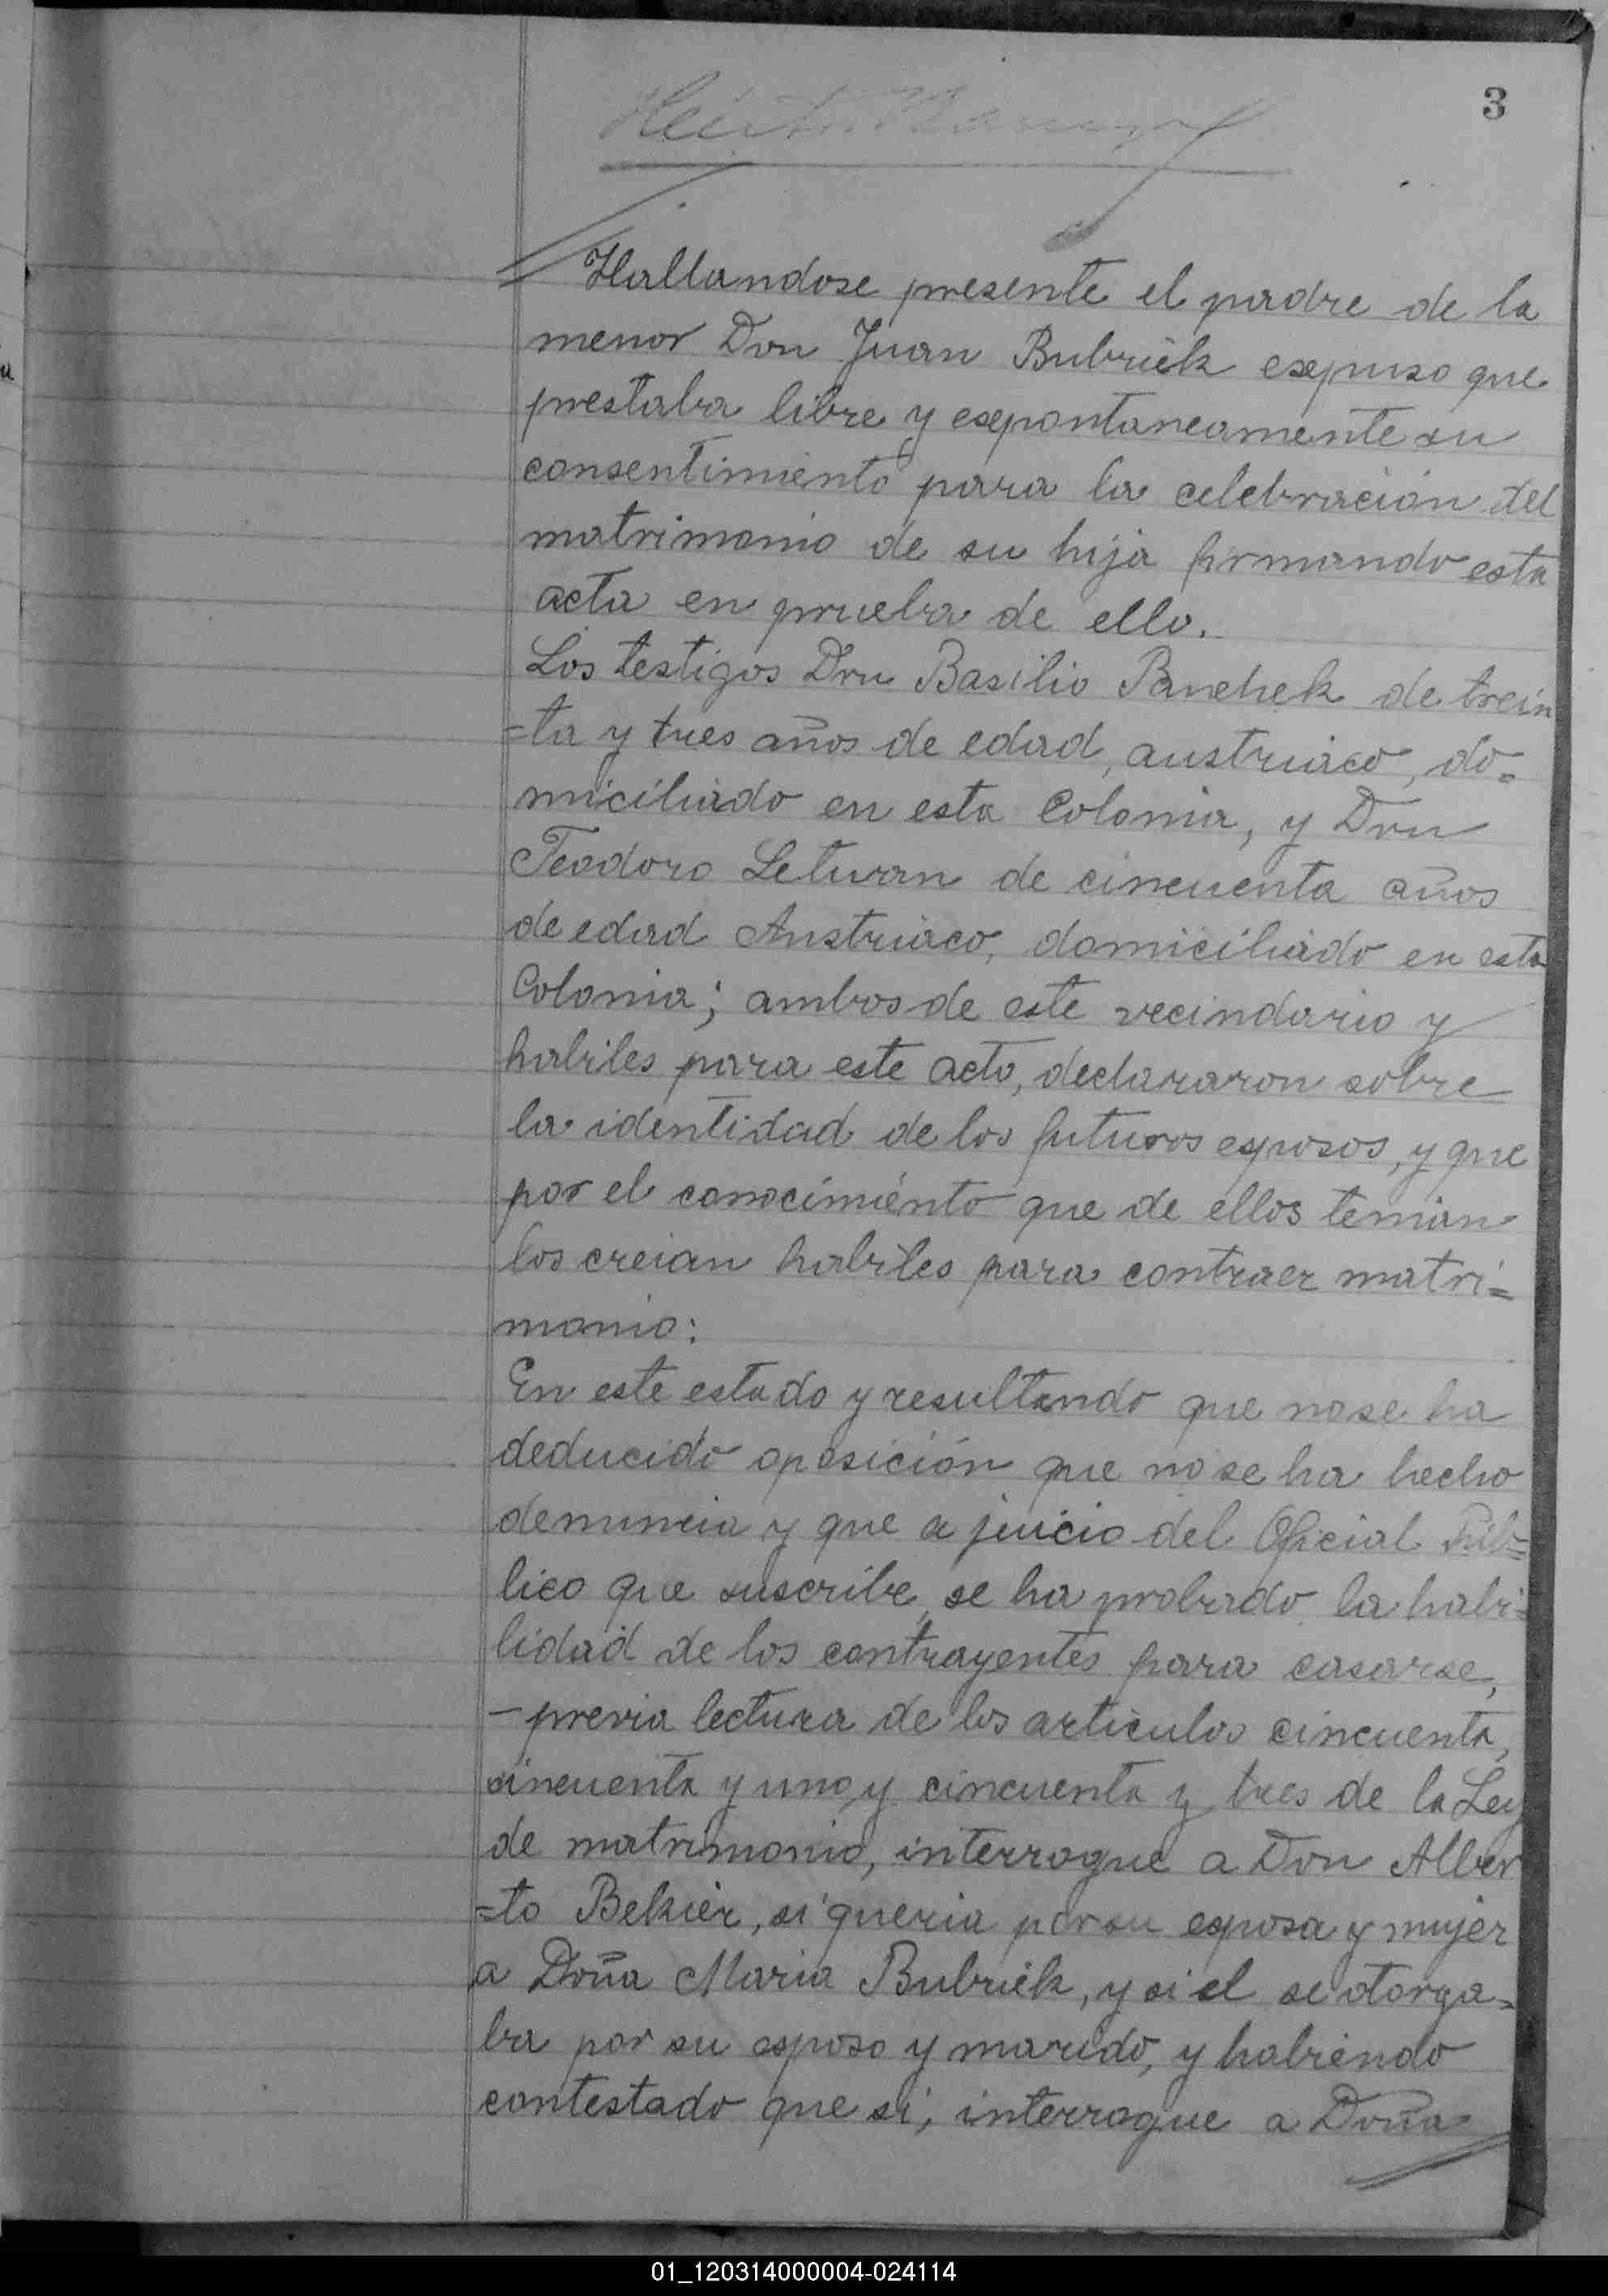 3
Hallandose presente el padre de la
menor Don Juan Bubriek exepuso que
prestaba libre y esepontaneamente su
consentimiento para la celebración del
matrimonio de su hija firmando esta
acta en prueba de ello.
Los testigos Don Basilio Panchek de trein
=ta y tres años de edad, austriaco, do=
miciliado en esta Colonia, y Don
Teodoro Letwan de cincuenta años
de edad Austriaco, domiciliado en esta
Colonia; ambos de este vecindario y
habiles para este acto, declararon sobre
la identidad de los futuros esposos, y que
por el conocimiento que de ellos tenian
los creian habiles para contraer matri=
monio:
En este estado y resultando que no se ha
deducido oposición que no se ha hecho
denuncia y que a juicio del Oficial Púb=
lico que suscribe, se ha probado la habi=
lidad de los contrayentes para casarse,
– previa lectura de los articulos cincuenta,
cincuenta y uno y cincuenta y tres de la Ley
de matrimonio, interrogue a Don Alber
=to Bekier, si queria por su esposa y mujer
a Doña Maria Bubriek, y si el se otorga=
ba por su esposo y marido, y habiendo
contestado que si, interrogue a Doña
01_120314000004-024114